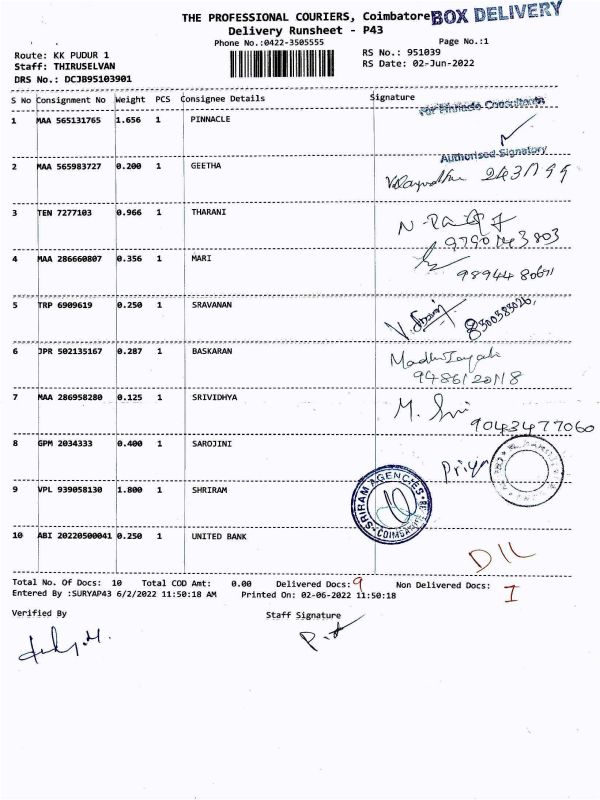 THE PROFESSIONAL COURIERS, Coimbatore BOX DELIVERY
Delivery Runsheet - P43
Phone No.:0422-3505555 Page No.:1
Route: KK PUDUR 1 RS No.: 951039
Staff: THIRUSELVAN RS Date: 02-Jun-2022
DRS No.: DCJB95103901
S No Consignment No Weight PCS Consignee Details Signature
For Pinnacle Consultants
1 MAA 565131765 1.656 1 PINNACLE
Authorised Signatory
2 MAA 565983727 0.200 1 GEETHA
3 TEN 7277103 0.966 1 THARANI
4 MAA 286660807 0.356 1 MARI
5 TRP 6909619 0.250 1 SRAVANAN
8300383026
6 JPR 502135167 0.287 1 BASKARAN
7 MAA 286958280 0.125 1 SRIVIDHYA M. Sri
9043477060
8 GPM 2034333 0.400 1 SAROJINI Priya
9 VPL 939058130 1.800 1 SHRIRAM SRIRAM AGENCIES COIMBATORE
10 ABI 20220500041 0.250 1 UNITED BANK D/L
Total No. Of Docs: 10 Total COD Amt: 0.00 Delivered Docs: 9 Non Delivered Docs: 1
Entered By :SURYAP43 6/2/2022 11:50:18 AM Printed On: 02-06-2022 11:50:18
Verified By Staff Signature